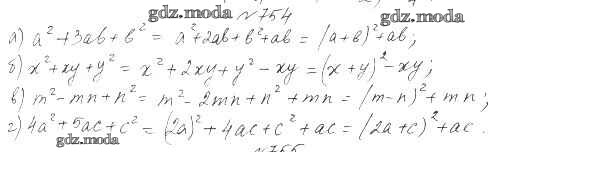 gdz.moda №754 gdz.moda
а) a² + 3ab + b² = a² + 2ab + b² + ab = (a + b)² + ab;
б) x² + xy + y² = x² + 2xy + y² - xy = (x + y)² - xy;
в) m² - mn + n² = m² - 2mn + n² + mn = (m - n)² + mn;
г) 4a² + 5ac + c² = (2a)² + 4ac + c² + ac = (2a + c)² + ac.
gdz.moda